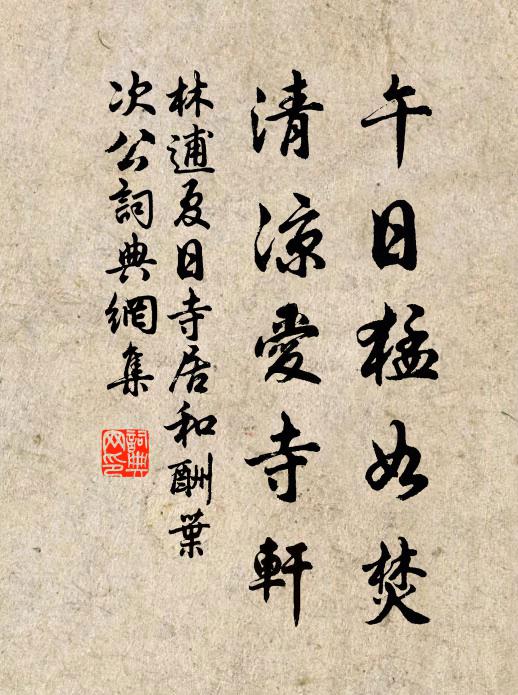 午日猛如焚
清涼愛寺軒
林逋夏日寺居和酬葉
次公詞典網集
詞典
网印